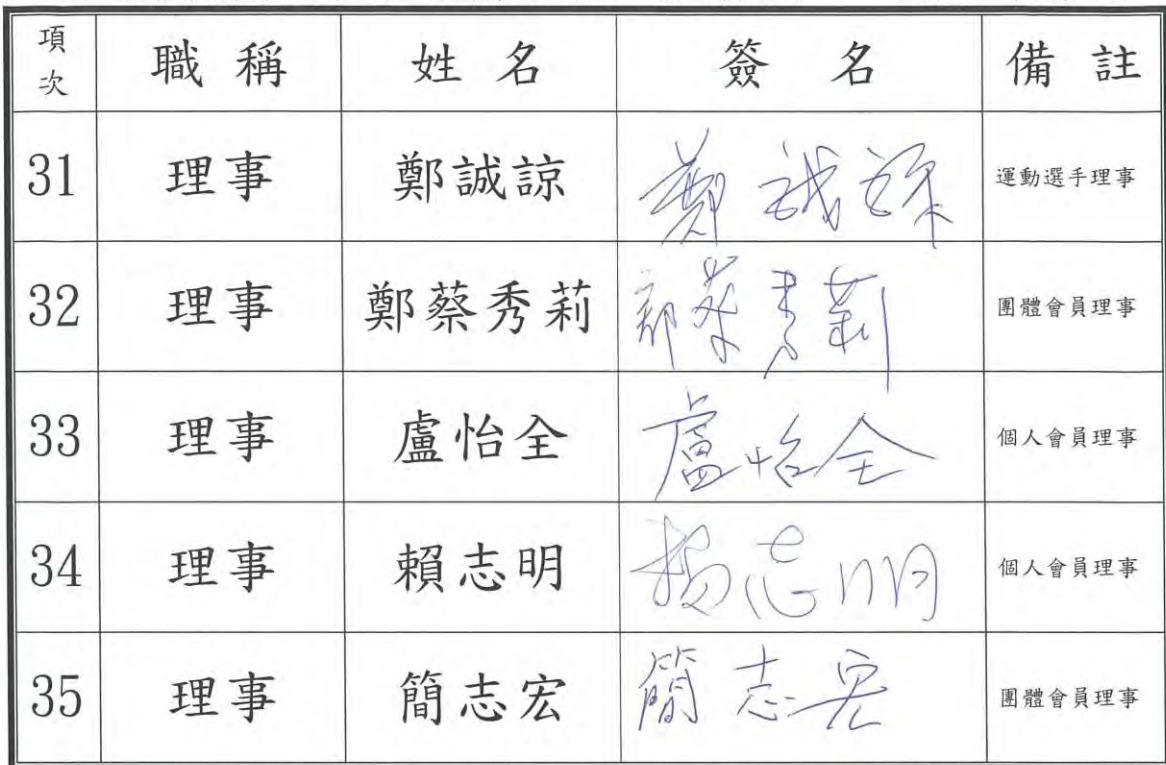 項次 職稱 姓名 簽名 備註
31 理事 鄭誠諒 鄭誠諒 運動選手理事
32 理事 鄭蔡秀莉 鄭蔡秀莉 團體會員理事
33 理事 盧怡全 盧怡全 個人會員理事
34 理事 賴志明 賴志明 個人會員理事
35 理事 簡志宏 簡志宏 團體會員理事